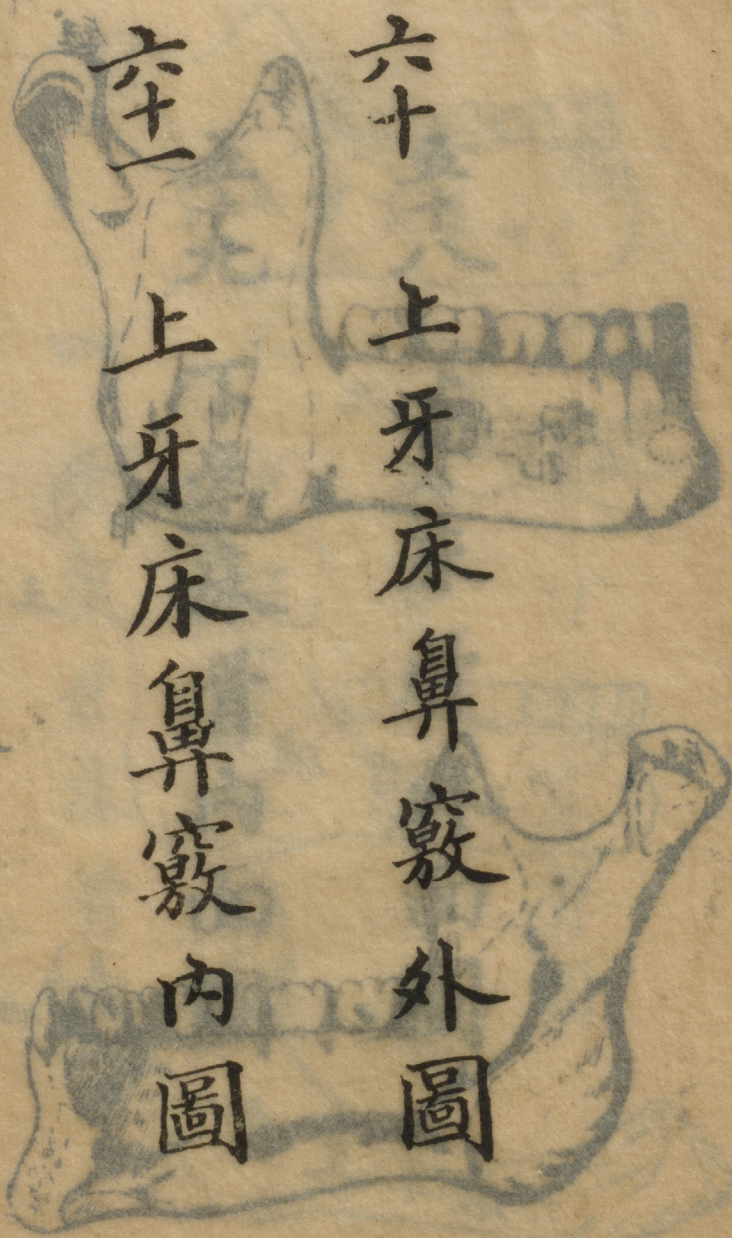 六十 上牙床鼻竅外圖
六十一 上牙床鼻竅內圖